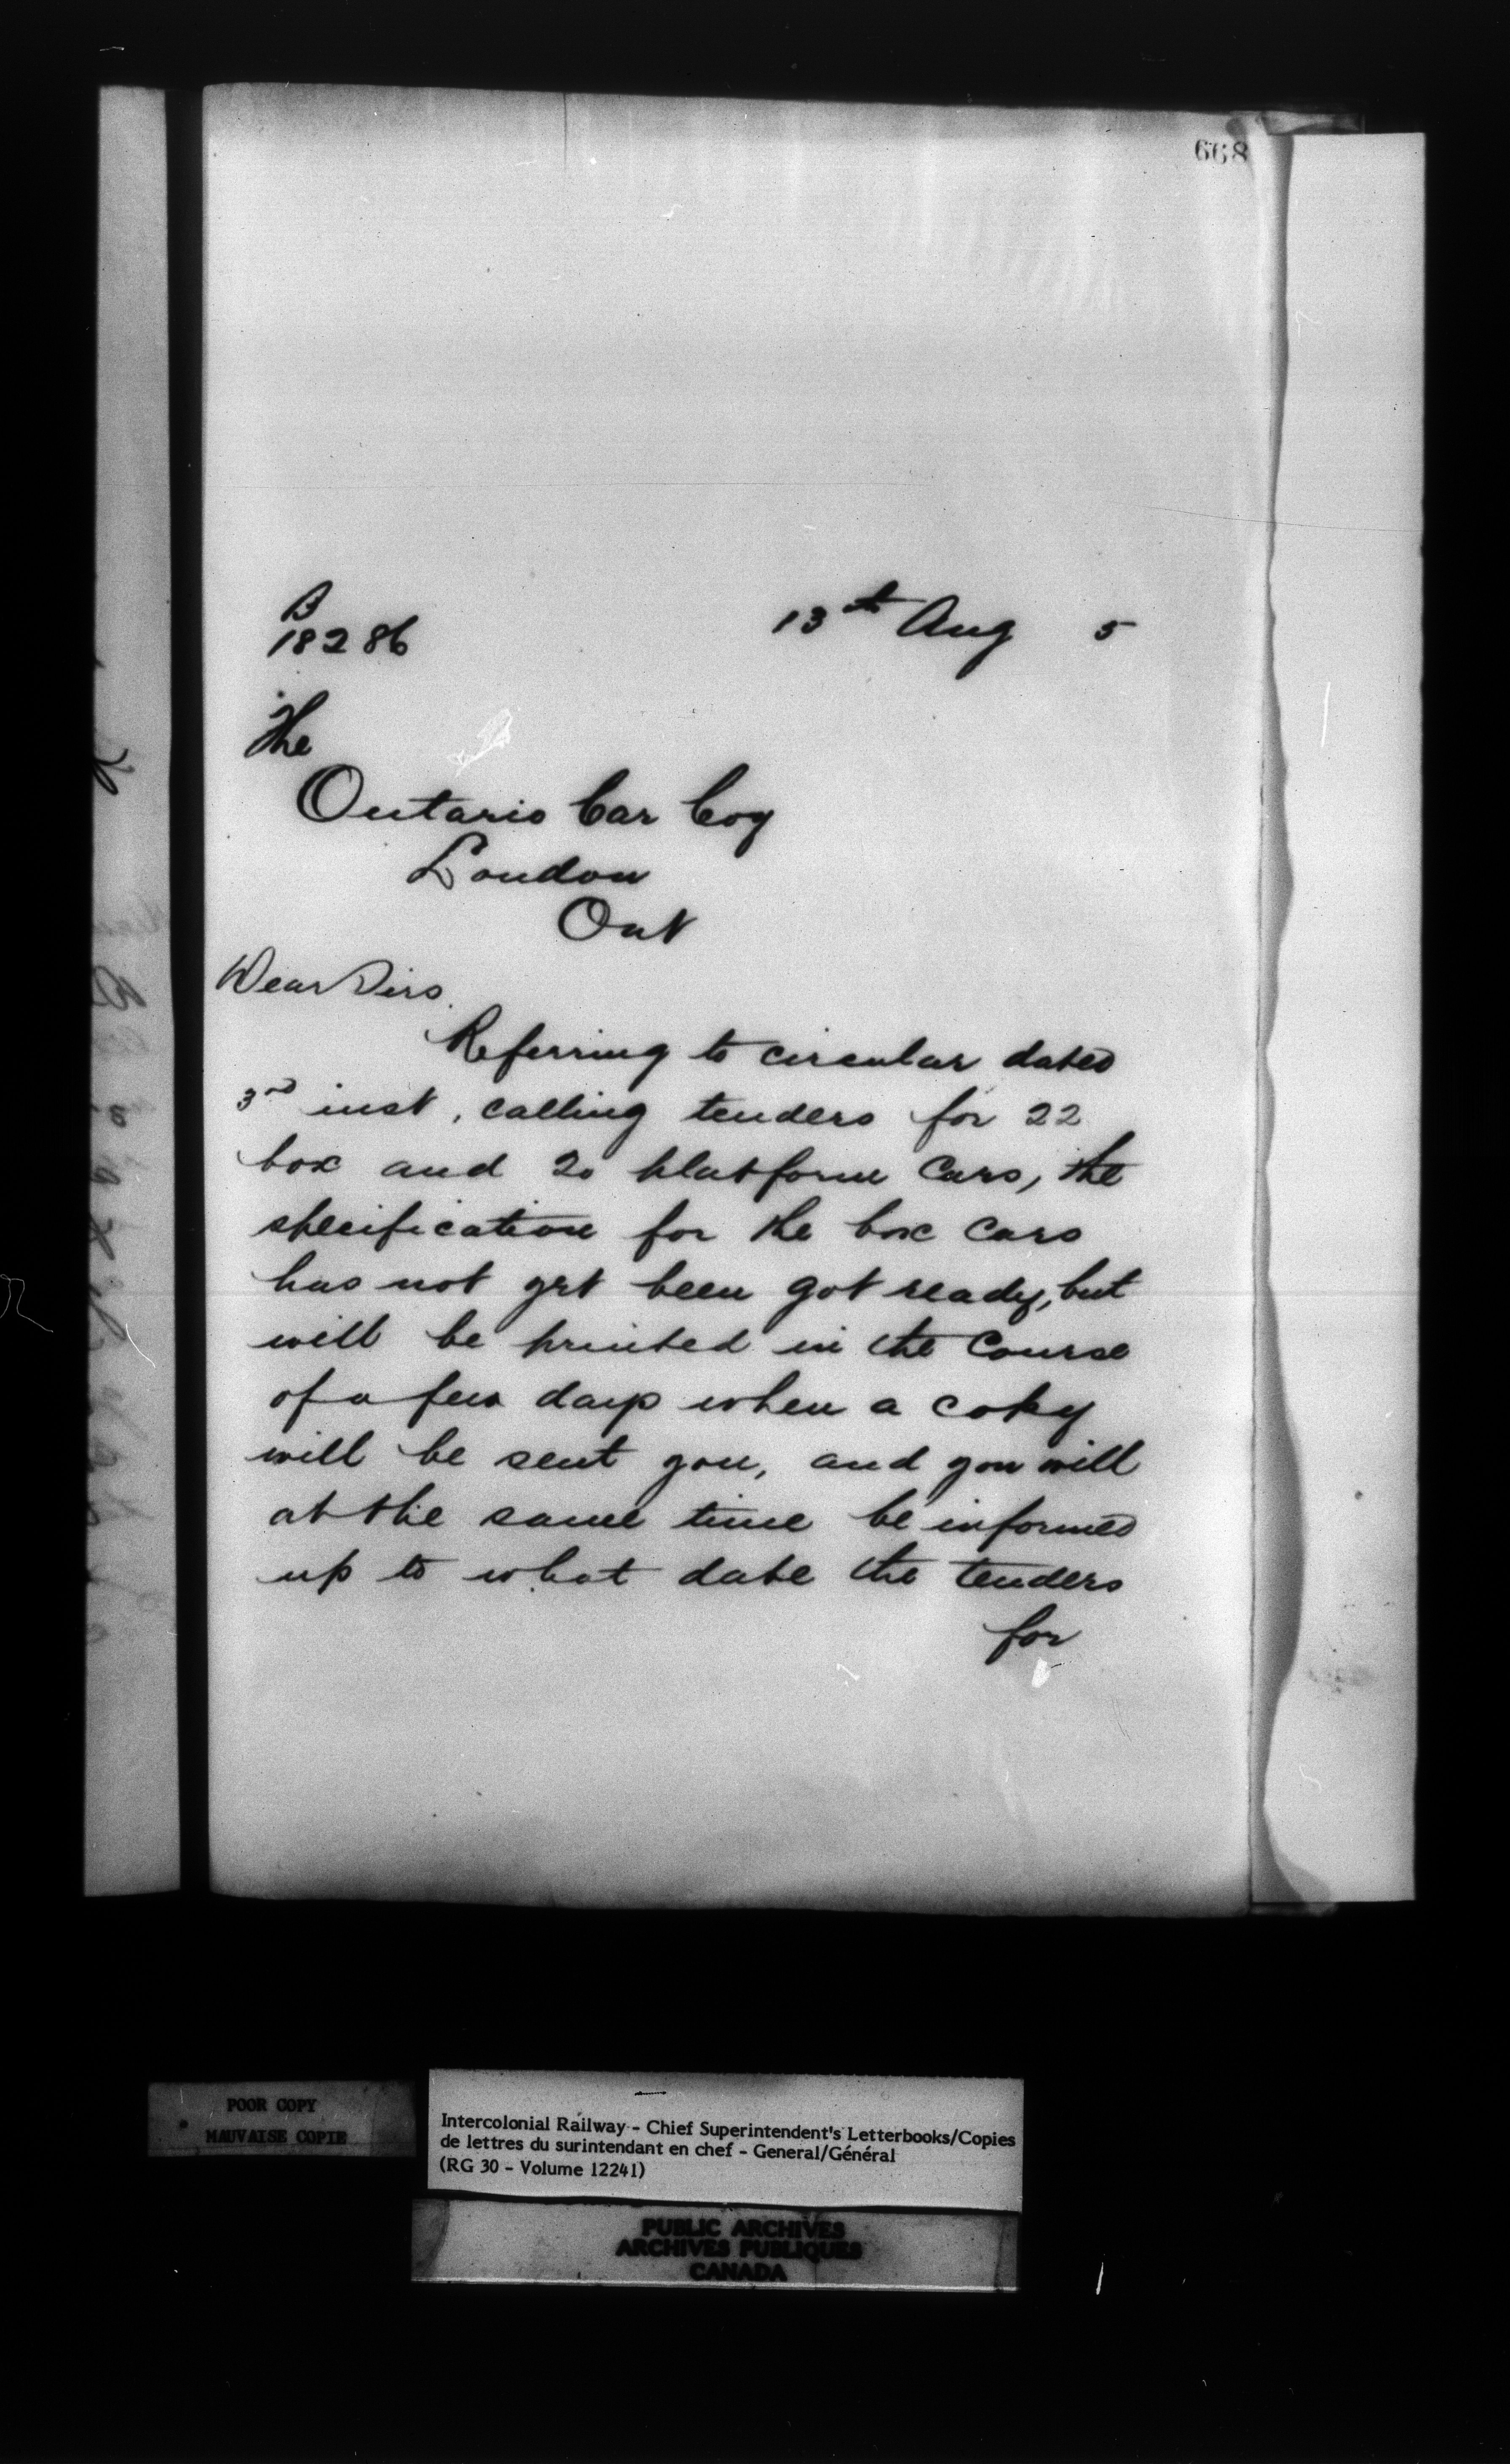 668
B
18286
13th Aug 5
The
Ontario Car Coy
London
Ont
Dear Sirs.
Referring to circular dated
3rd inst, calling tenders for 22
box and 20 platform Cars, the
specification for the box cars
has not yet been got ready, but
will be printed in the Course
of a few days when a copy
will be sent you, and you will
at the same time be informed
up to what date the tenders
for
POOR COPY
MAUVAISE COPIE
Intercolonial Railway - Chief Superintendent's Letterbooks/Copies
de lettres du surintendant en chef - General/Général
(RG 30 - Volume 12241)
PUBLIC ARCHIVES
ARCHIVES PUBLIQUES
CANADA